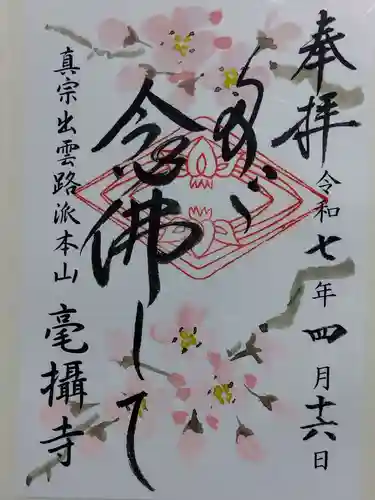 奉拝
令和七年四月十六日
たゞ
念佛して
真宗出雲路派本山
毫攝寺